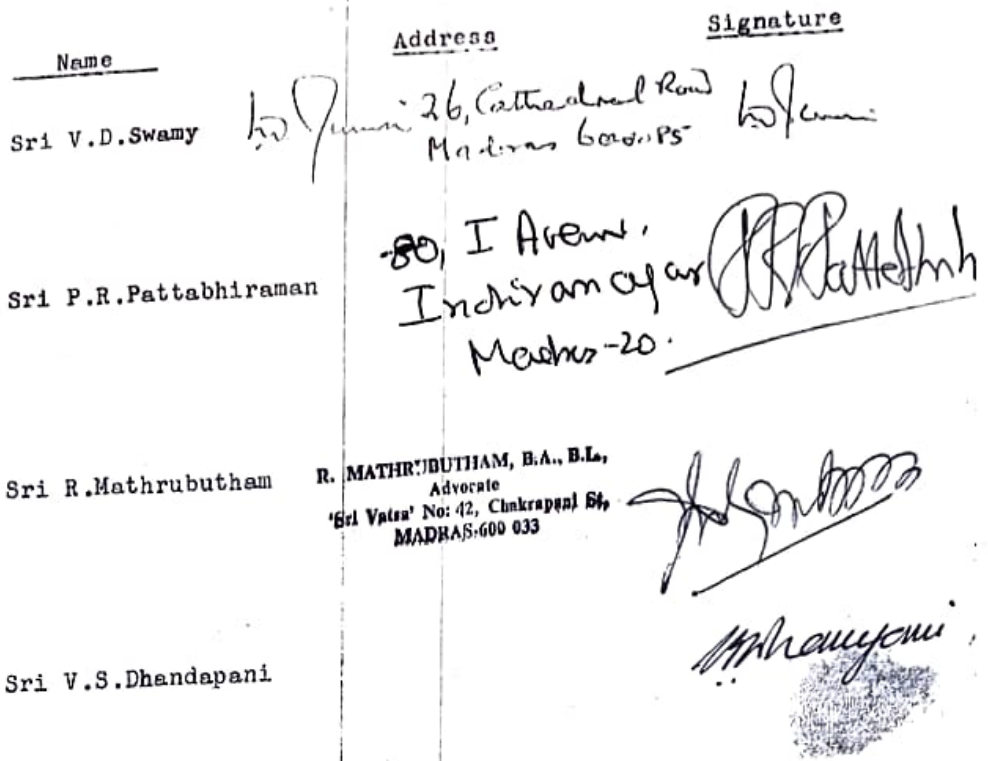 Name Address Signature
Sri V.D.Swamy 26, Cathedral Road
Madras
Sri P.R.Pattabhiraman 80, I Avenue,
Indiranagar
Madras-20.
Sri R.Mathrubutham R. MATHRUBUTHAM, B.A., B.L.,
Advocate
'Sri Vatsa' No: 42, Chakrapani St,
MADRAS-600 033
Sri V.S.Dhandapani